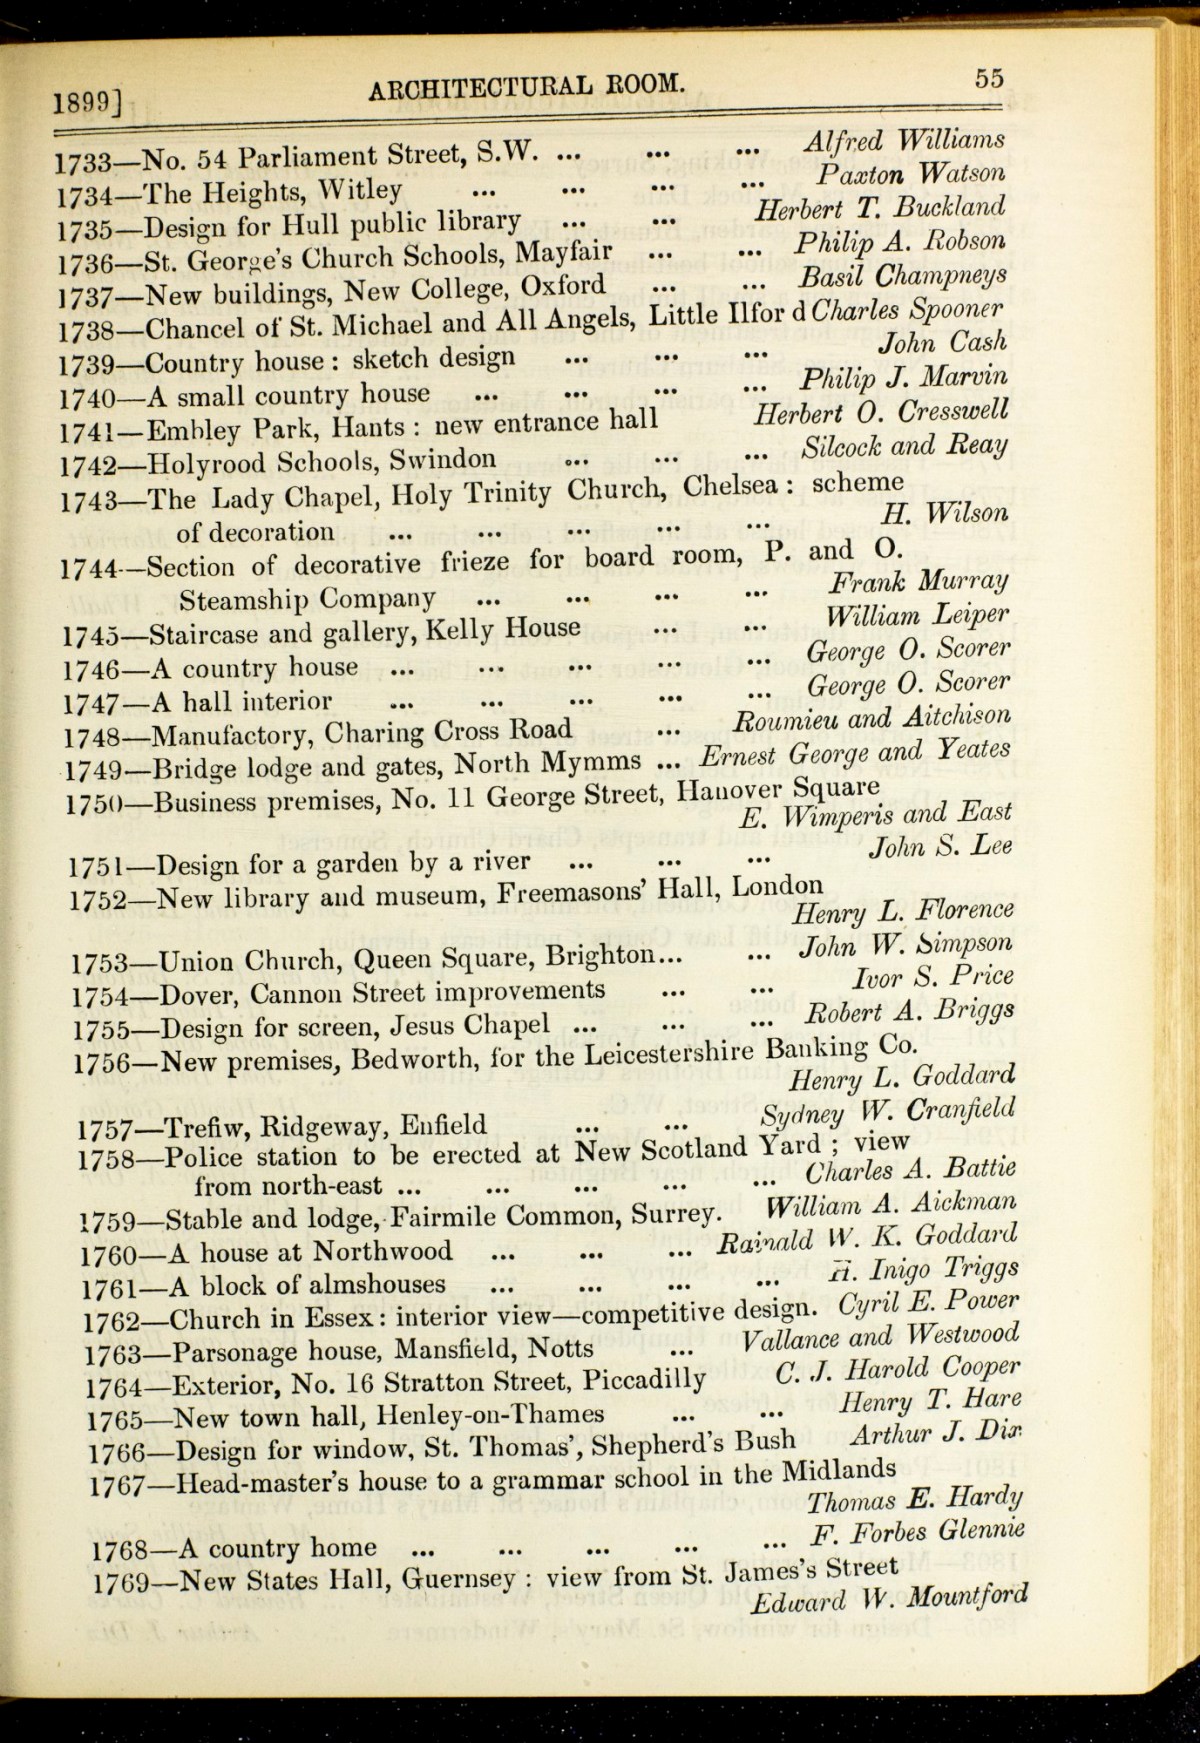 1899] ARCHITECTURAL ROOM. 55
1733—No. 54 Parliament Street, S.W. ... ... ... Alfred Williams
1734—The Heights, Witley ... ... ... ... Paxton Watson
1735—Design for Hull public library ... ... Herbert T. Buckland
1736—St. George's Church Schools, Mayfair ... ... Philip A. Robson
1737—New buildings, New College, Oxford ... ... Basil Champneys
1738—Chancel of St. Michael and All Angels, Little Ilfor d Charles Spooner
1739—Country house : sketch design ... ... ... John Cash
1740—A small country house ... ... ... ... Philip J. Marvin
1741—Embley Park, Hants : new entrance hall Herbert O. Cresswell
1742—Holyrood Schools, Swindon ... ... ... Silcock and Reay
1743—The Lady Chapel, Holy Trinity Church, Chelsea : scheme
of decoration ... ... ... ... ... H. Wilson
1744—Section of decorative frieze for board room, P. and O.
Steamship Company ... ... ... ... Frank Murray
1745—Staircase and gallery, Kelly House ... ... William Leiper
1746—A country house ... ... ... ... ... George O. Scorer
1747—A hall interior ... ... ... ... ... George O. Scorer
1748—Manufactory, Charing Cross Road ... Roumieu and Aitchison
1749—Bridge lodge and gates, North Mymms ... Ernest George and Yeates
1750—Business premises, No. 11 George Street, Hanover Square
E. Wimperis and East
1751—Design for a garden by a river ... ... ... John S. Lee
1752—New library and museum, Freemasons' Hall, London
Henry L. Florence
1753—Union Church, Queen Square, Brighton... ... John W. Simpson
1754—Dover, Cannon Street improvements ... ... Ivor S. Price
1755—Design for screen, Jesus Chapel ... ... ... Robert A. Briggs
1756—New premises, Bedworth, for the Leicestershire Banking Co.
Henry L. Goddard
1757—Trefiw, Ridgeway, Enfield ... ... Sydney W. Cranfield
1758—Police station to be erected at New Scotland Yard ; view
from north-east ... ... ... ... ... Charles A. Battie
1759—Stable and lodge, Fairmile Common, Surrey. William A. Aickman
1760—A house at Northwood ... ... ... Rainald W. K. Goddard
1761—A block of almshouses ... ... ... ... H. Inigo Triggs
1762—Church in Essex : interior view—competitive design. Cyril E. Power
1763—Parsonage house, Mansfield, Notts ... Vallance and Westwood
1764—Exterior, No. 16 Stratton Street, Piccadilly C. J. Harold Cooper
1765—New town hall, Henley-on-Thames ... ... Henry T. Hare
1766—Design for window, St. Thomas', Shepherd's Bush Arthur J. Dix
1767—Head-master's house to a grammar school in the Midlands
Thomas E. Hardy
1768—A country home ... ... ... ... ... F. Forbes Glennie
1769—New States Hall, Guernsey : view from St. James's Street
Edward W. Mountford